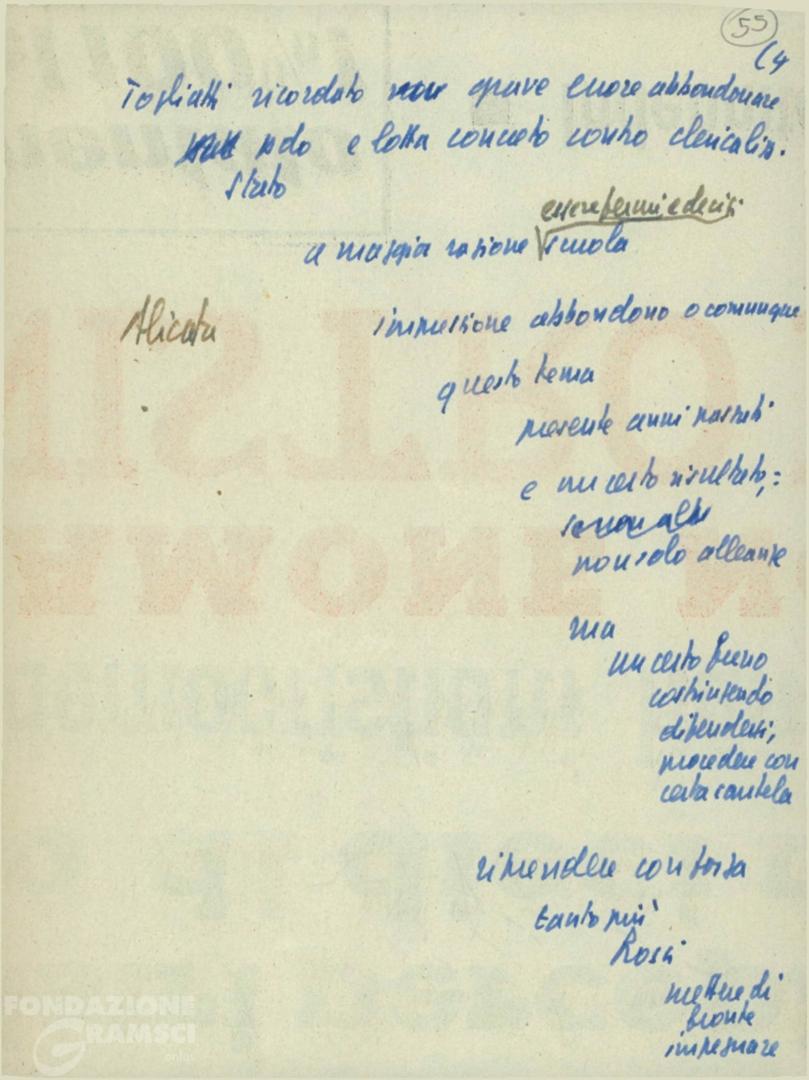 55
(4
Togliatti ricordato non grave errore abbandonare
e lotta concreta contro clericaliz.
Stato
essere fermi e decisi
a maggia ragione scuola
Alicata
impressione abbandono o comunque
questo tema
presente anni passati
e un certo risultato,:
non solo alleanze
ma
un certo freno
costringendo
difendersi,
procedere con
certa cautela
riprendere con forza
tanto più
Rossi
mettere di
fronte
impegnare
FONDAZIONE
GRAMSCI
onlus